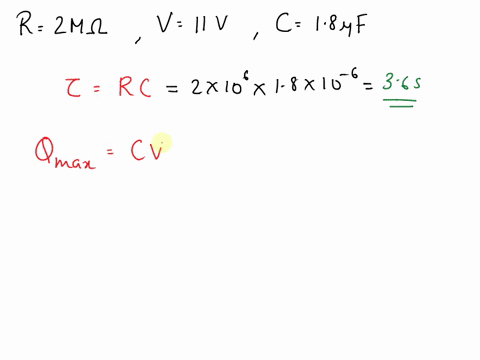 R = 2MΩ , V = 11 V , C = 1.8 μF
τ = RC = 2×10⁶ × 1.8 × 10⁻⁶ = 3.6s
Qmax = CV